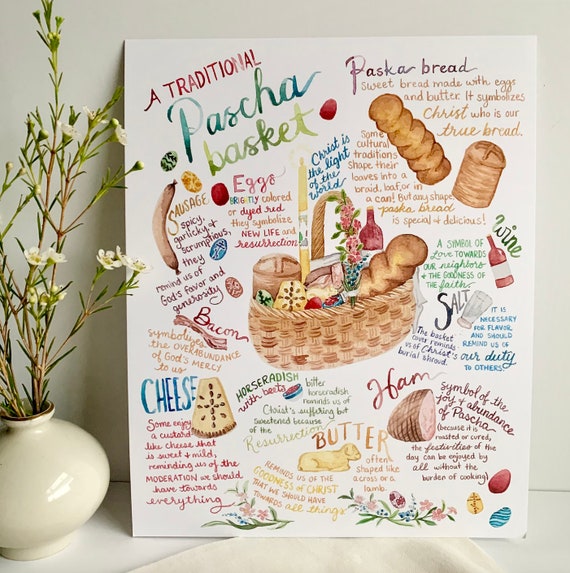 A TRADITIONAL
Pascha
basket
Paska bread
Sweet bread made with eggs
and butter. It symbolizes
Christ who is our
true bread.
Some
cultural
traditions
shape their
loaves into a
braid, loaf, or in
a can! But any shape
paska bread
is special & delicious!
Christ is
the light
of the
world
Eggs
BRIGHTLY colored
or dyed red
they symbolize
NEW LIFE and
resurrection
SAUSAGE
spicy,
garlicky &
scrumptious
they
remind us of
God's favor and
generosity
wine
A SYMBOL OF
LOVE TOWARDS
OUR NEIGHBORS
& THE GOODNESS OF
THE FAITH.
SALT
IT IS
NECESSARY
FOR FLAVOR
AND SHOULD
REMIND US OF
our duty
TO OTHERS
The basket
cover reminds
us of Christ's
burial shroud.
Bacon
symbolizes
the OVERABUNDANCE
of God's MERCY
to us
CHEESE
Some enjoy
a custard
like cheese that
is sweet & mild,
reminding us of the
MODERATION we should
have towards
everything
HORSERADISH
with beets
bitter
horseradish
reminds us of
Christ's suffering but
sweetened because
of the
Resurrection
BUTTER
often
shaped like
a cross or a
lamb.
REMINDS US OF THE
GOODNESS OF CHRIST
THAT WE SHOULD HAVE
TOWARDS all things
Ham
Symbol of the
joy & abundance
of Pascha
(because it is
roasted or cured,
the festivities of the
day can be enjoyed by
all without the
burden of cooking)